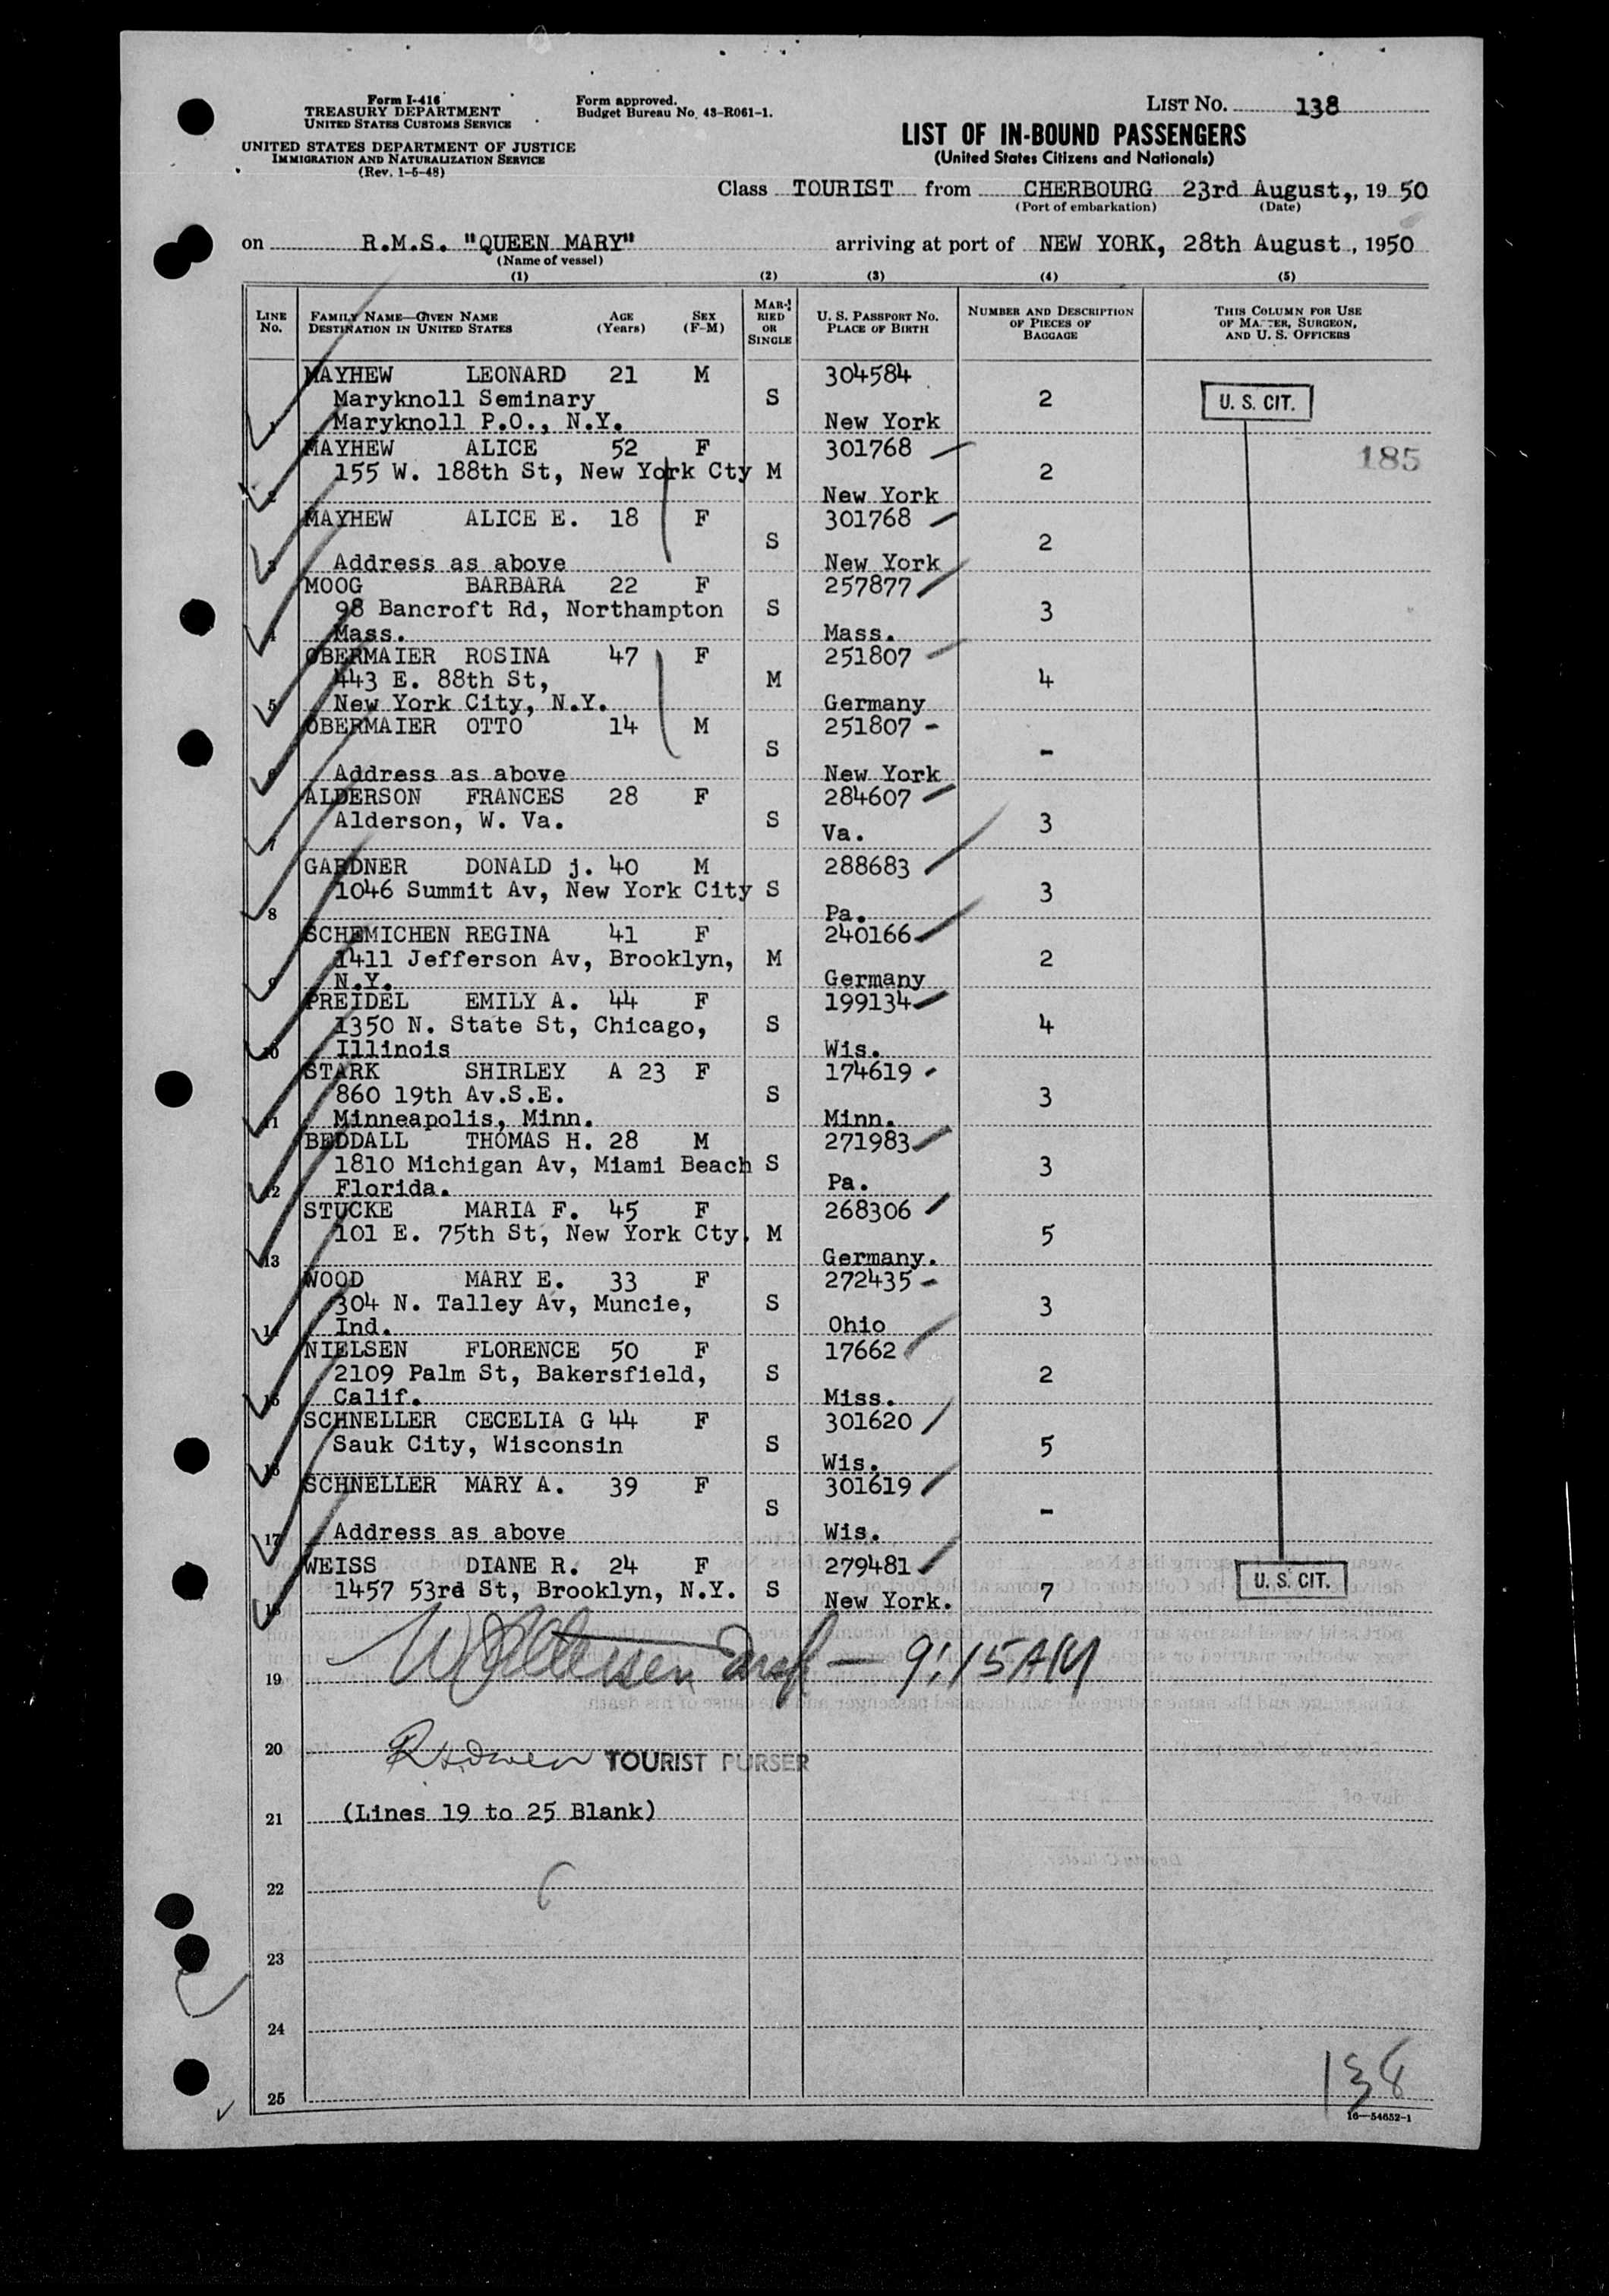 Form I-416
TREASURY DEPARTMENT
UNITED STATES CUSTOMS SERVICE
UNITED STATES DEPARTMENT OF JUSTICE
IMMIGRATION AND NATURALIZATION SERVICE
(Rev. 1-5-48)
Form approved.
Budget Bureau No. 43-R061-1.
LIST NO. 138
LIST OF IN-BOUND PASSENGERS
(United States Citizens and Nationals)
Class TOURIST from CHERBOURG 23rd August,, 1950
(Port of embarkation) (Date)
on R.M.S. "QUEEN MARY" arriving at port of NEW YORK, 28th August, 1950
(Name of vessel)
(1) (2) (3) (4) (5)
LINE NO. FAMILY NAME—GIVEN NAME DESTINATION IN UNITED STATES AGE (Years) SEX (F-M) MARRIED OR SINGLE U. S. PASSPORT NO. PLACE OF BIRTH NUMBER AND DESCRIPTION OF PIECES OF BAGGAGE THIS COLUMN FOR USE OF MASTER, SURGEON, AND U. S. OFFICERS
MAYHEW LEONARD 21 M 304584
Maryknoll Seminary S 2 U. S. CIT.
1 Maryknoll P.O., N.Y. New York
MAYHEW ALICE 52 F 301768 185
155 W. 188th St, New York Cty M 2
2 New York
MAYHEW ALICE E. 18 F 301768
S 2
3 Address as above New York
MOOG BARBARA 22 F 257877
98 Bancroft Rd, Northampton S 3
4 Mass. Mass.
OBERMAIER ROSINA 47 F 251807
443 E. 88th St, M 4
5 New York City, N.Y. Germany
OBERMAIER OTTO 14 M 251807 -
S -
6 Address as above New York
ALDERSON FRANCES 28 F 284607
Alderson, W. Va. S 3
7 Va.
GARDNER DONALD j. 40 M 288683
1046 Summit Av, New York City S 3
8 Pa.
SCHEMICHEN REGINA 41 F 240166
1411 Jefferson Av, Brooklyn, M 2
9 N.Y. Germany
PREIDEL EMILY A. 44 F 199134
1350 N. State St, Chicago, S 4
10 Illinois Wis.
STARK SHIRLEY A 23 F 174619
860 19th Av.S.E. S 3
11 Minneapolis, Minn. Minn.
BEDDALL THOMAS H. 28 M 271983
1810 Michigan Av, Miami Beach S 3
12 Florida. Pa.
STUCKE MARIA F. 45 F 268306
101 E. 75th St, New York Cty. M 5
13 Germany.
WOOD MARY E. 33 F 272435
304 N. Talley Av, Muncie, S 3
14 Ind. Ohio
NIELSEN FLORENCE 50 F 17662
2109 Palm St, Bakersfield, S 2
15 Calif. Miss.
SCHNELLER CECELIA G 44 F 301620
Sauk City, Wisconsin S 5
16 Wis.
SCHNELLER MARY A. 39 F 301619
S -
17 Address as above Wis.
WEISS DIANE R. 24 F 279481 U. S. CIT.
1457 53rd St, Brooklyn, N.Y. S 7
18 New York.
19 — 9:15 AM
20 TOURIST PURSER
21 (Lines 19 to 25 Blank)
22
23
24
25
138
16—54652-1